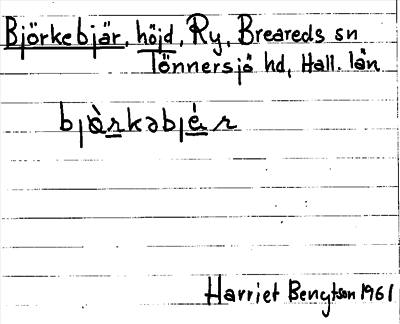 Björkebjär, höjd, Ry, Breareds sn
Tönnersjö hd, Hall. län
bjὰrkəbjὲr
Harriet Bengtson 1961